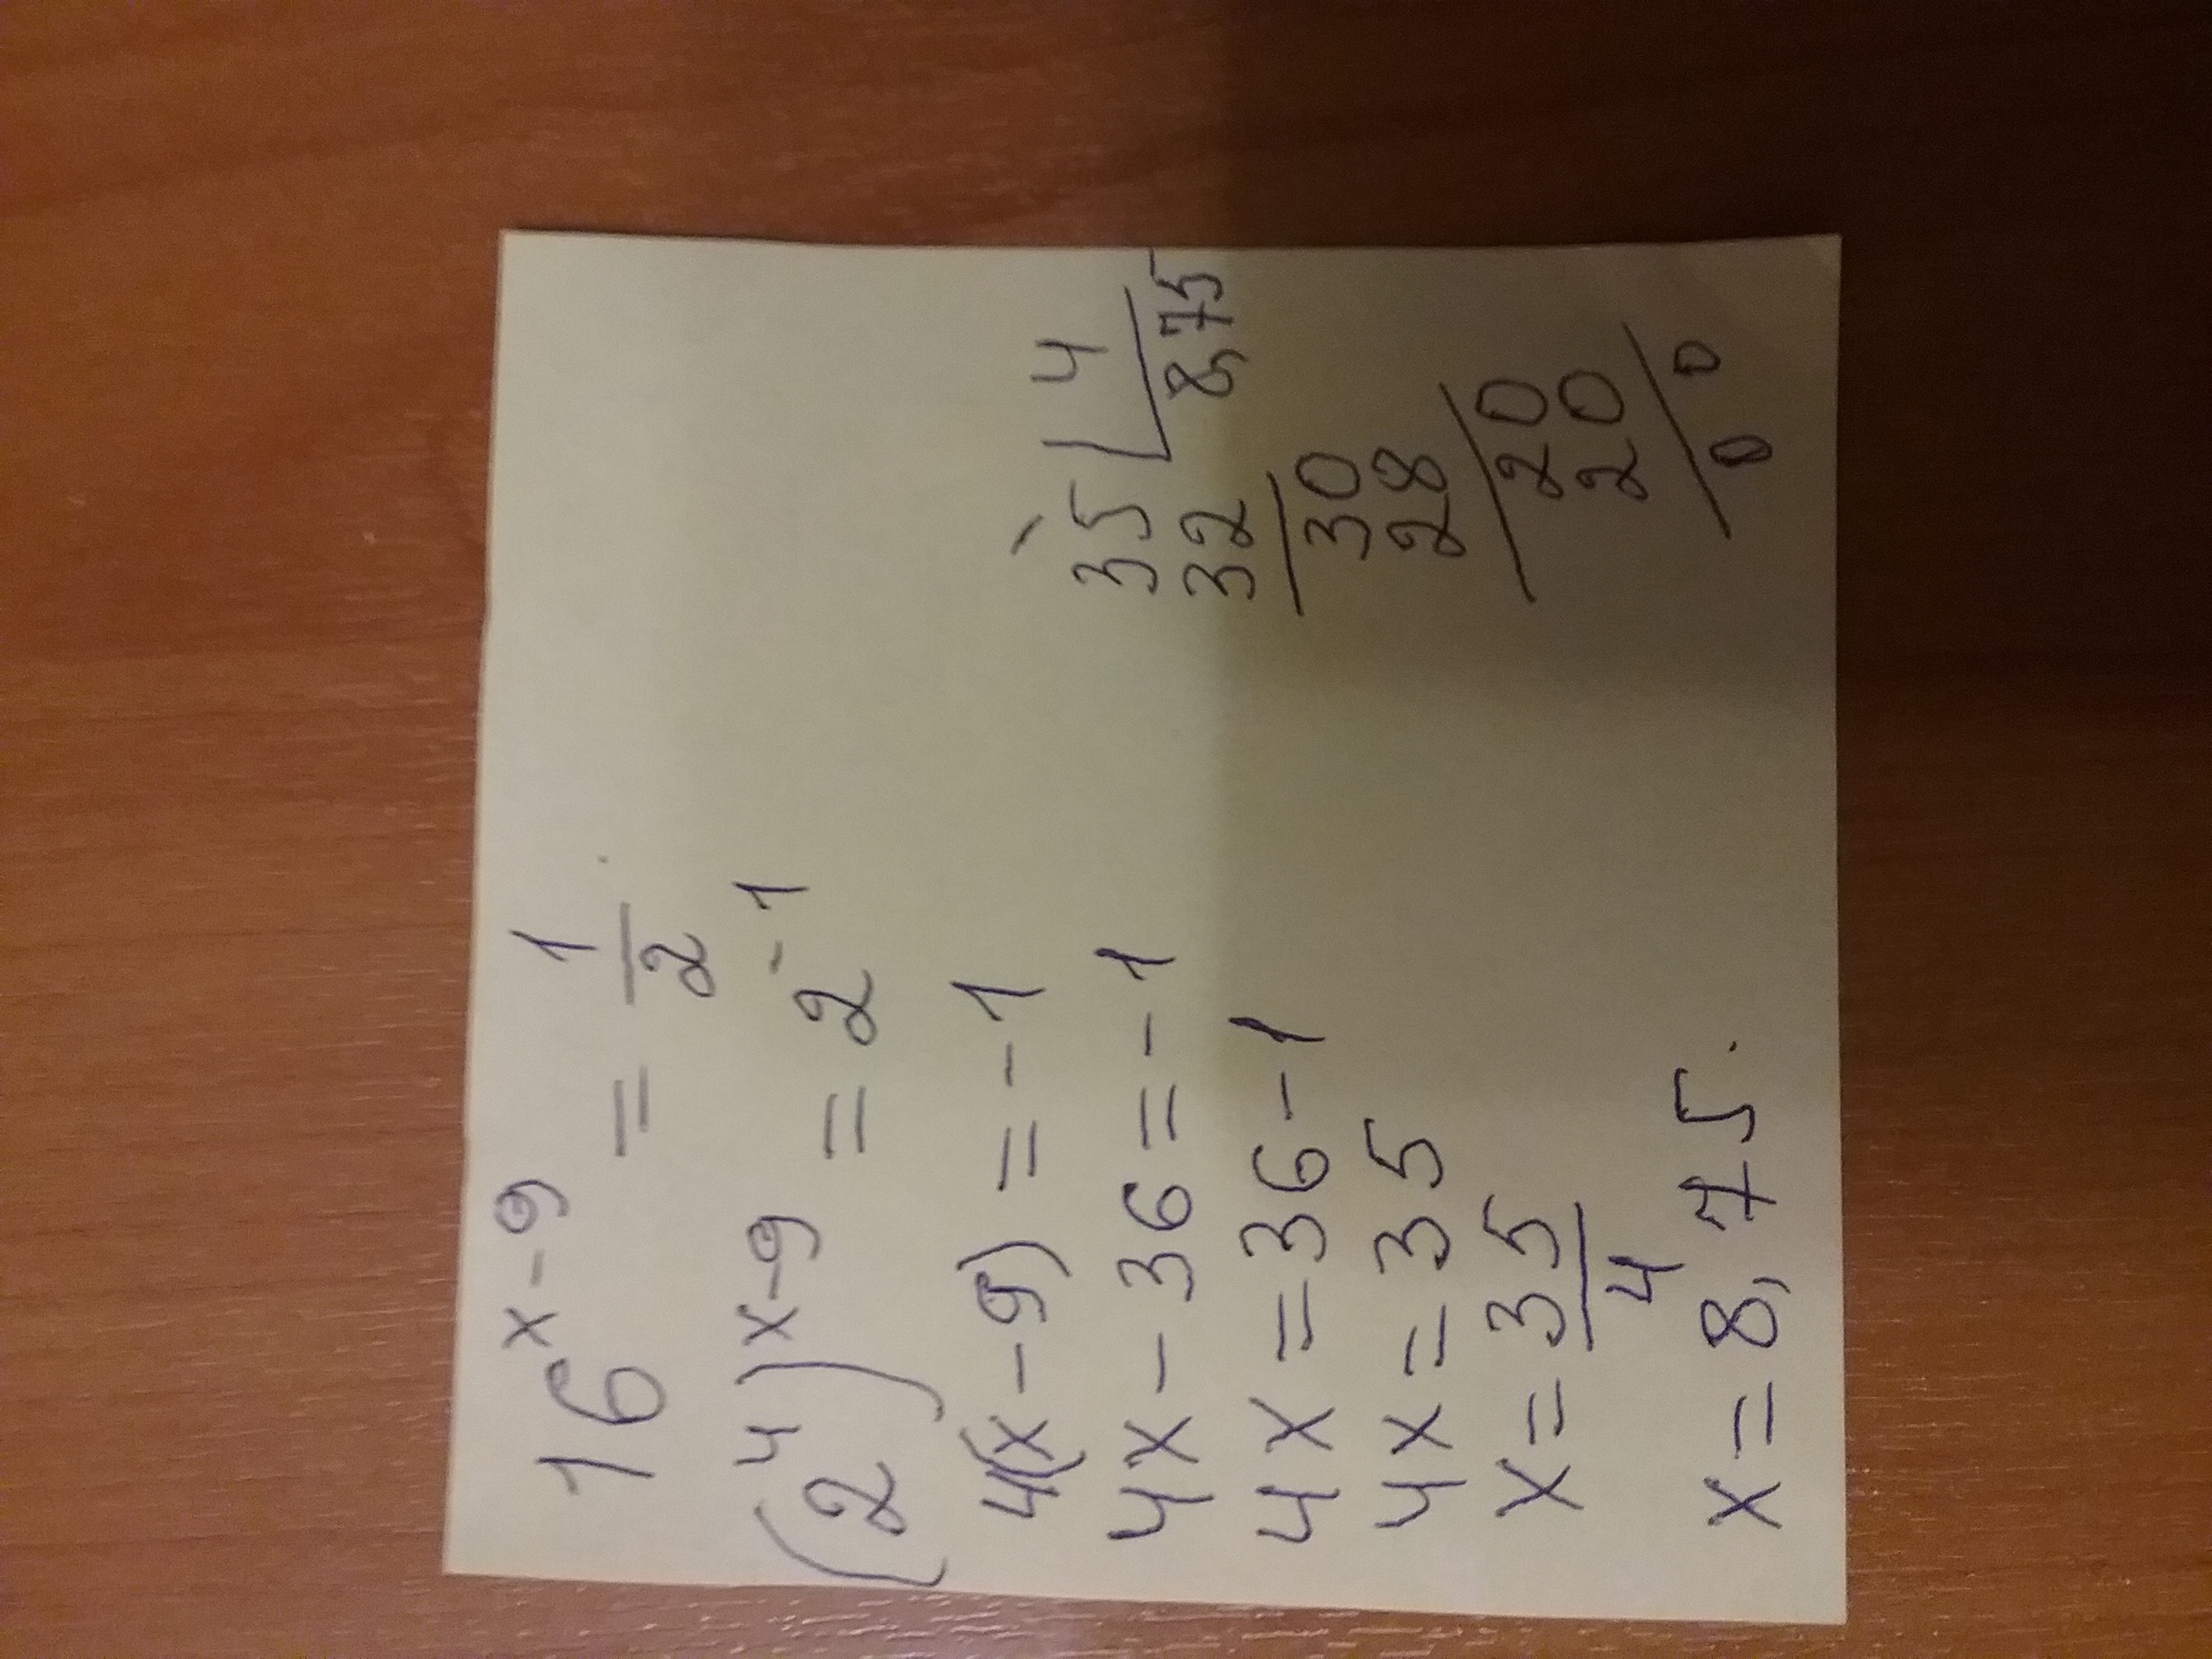 16^(x-9) = 1/2
(2^4)^(x-9) = 2^(-1)
4(x-9) = -1
4x - 36 = -1
4x = 36 - 1
4x = 35
x = 35/4
x = 8,75.
35 | 4
32 | 8,75
30
28
20
20
0 0